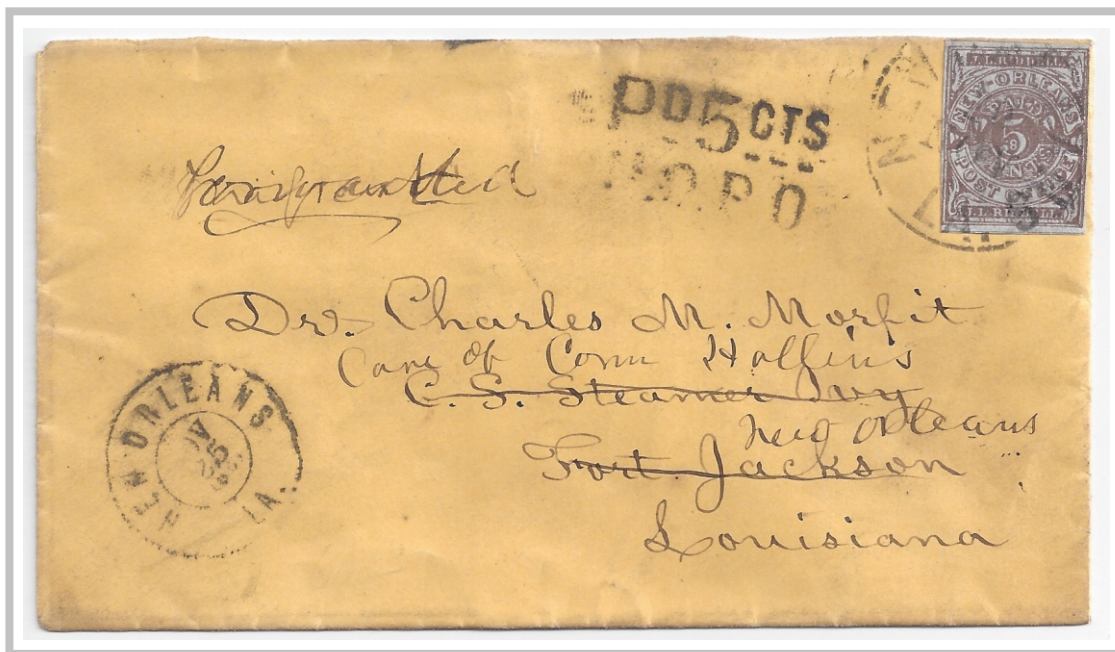 PD 5 CTS
N.O.P.O
J.L.RIDDELL
NEW-ORLEANS
PAID
5
CENTS
POST OFFICE
J.L.RIDDELL
Dr. Charles M. Morfit
Care of Com Hollins
C. S. Steamer Ivy
New Orleans
Fort Jackson
Louisiana
NEW ORLEANS
25
LA.